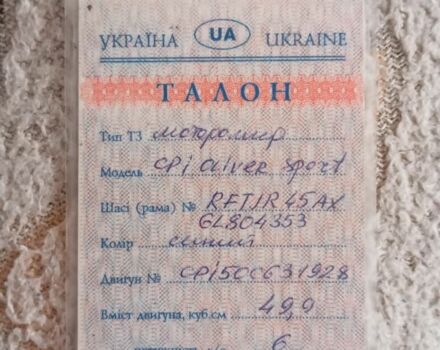 УКРАЇНА UA UKRAINE
ТАЛОН
Тип ТЗ моторолер
Модель CPI Oliver Sport
Шасі (рама) № RFTIR45AX
6L804353
Колір синий
Двигун № CPI500631928
Вміст двигуна, куб.см 49,9
6